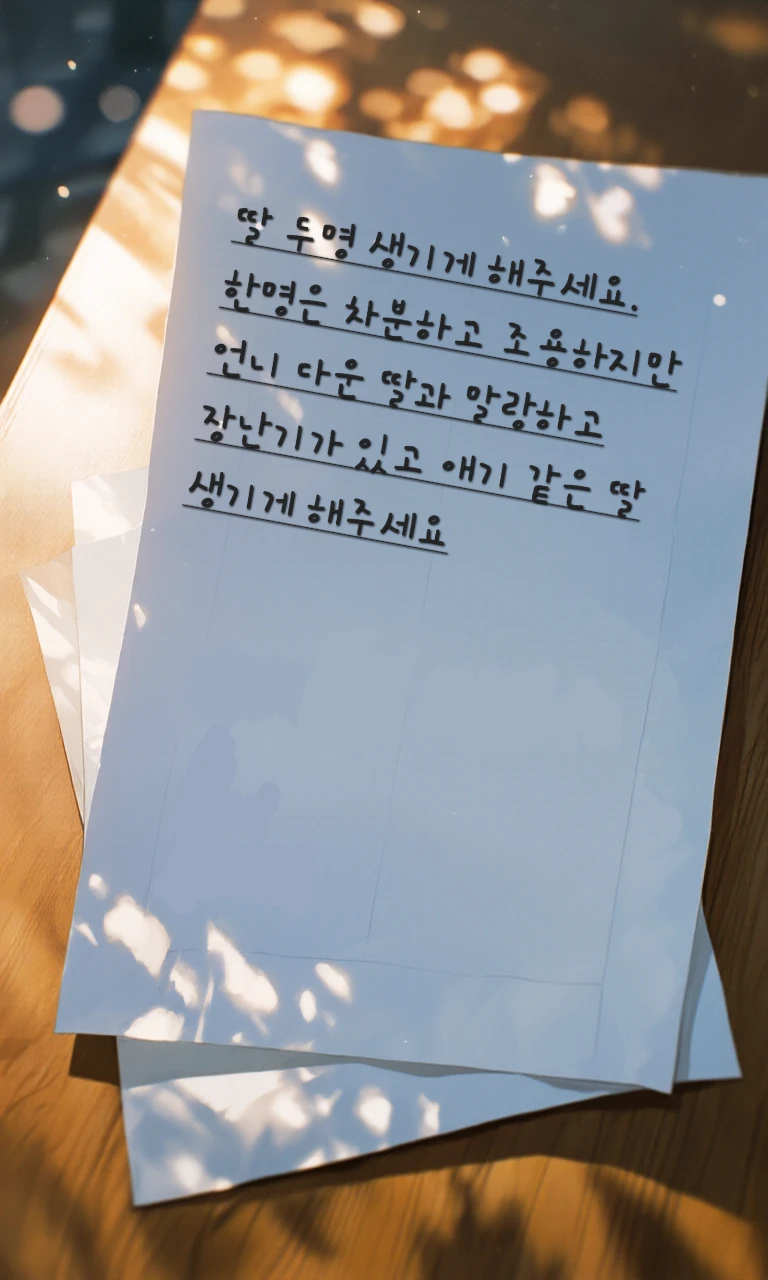 딸 두명 생기게 해주세요.
한명은 차분하고 조용하지만
언니 다운 딸과 말랑하고
장난기가 있고 애기 같은 딸
생기게 해주세요